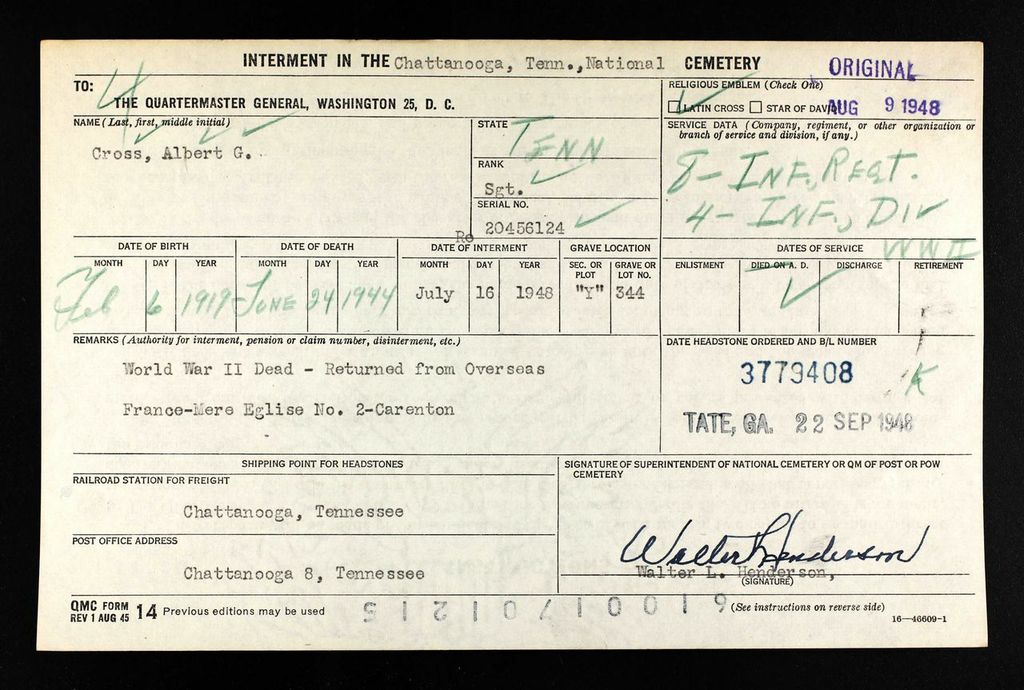 INTERMENT IN THE Chattanooga, Tenn., National CEMETERY
ORIGINAL
TO:
THE QUARTERMASTER GENERAL, WASHINGTON 25, D. C.
RELIGIOUS EMBLEM (Check One)
LATIN CROSS STAR OF DAVID
AUG 9 1948
NAME (Last, first, middle initial)
Cross, Albert G.
STATE
TENN
RANK
Sgt.
SERIAL NO.
20456124
SERVICE DATA (Company, regiment, or other organization or
branch of service and division, if any.)
8 - INF, REGT.
4 - INF., DIV
WWII
DATE OF BIRTH DATE OF DEATH Re DATE OF INTERMENT GRAVE LOCATION DATES OF SERVICE
MONTH DAY YEAR MONTH DAY YEAR MONTH DAY YEAR SEC. OR PLOT GRAVE OR LOT NO. ENLISTMENT DIED ON A. D. DISCHARGE RETIREMENT
Feb 6 1919 JUNE 24 1944 July 16 1948 "Y" 344
REMARKS (Authority for interment, pension or claim number, disinterment, etc.)
World War II Dead - Returned from Overseas
France-Mere Eglise No. 2-Carenton
DATE HEADSTONE ORDERED AND B/L NUMBER
3779408
K
TATE, GA. 22 SEP 1948
SHIPPING POINT FOR HEADSTONES
RAILROAD STATION FOR FREIGHT
Chattanooga, Tennessee
POST OFFICE ADDRESS
Chattanooga 8, Tennessee
SIGNATURE OF SUPERINTENDENT OF NATIONAL CEMETERY OR QM OF POST OR POW
CEMETERY
Walter L. Henderson
Walter L. Henderson,
(SIGNATURE)
QMC FORM
REV 1 AUG 45 14 Previous editions may be used
(See instructions on reverse side)
16—46609-1